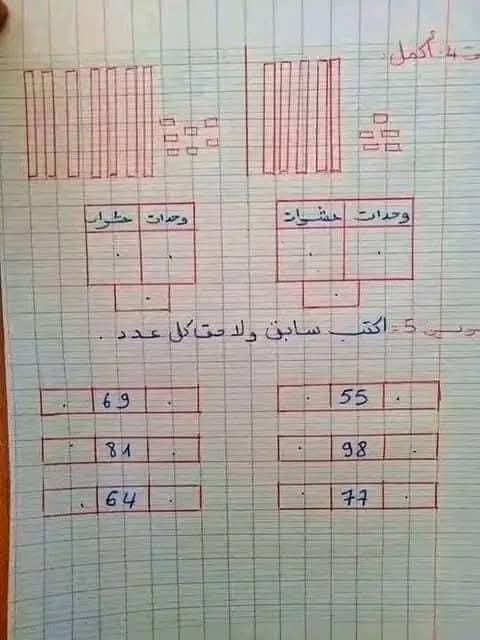 ت 4. أكمل.
وحدات عشرات وحدات عشرات
5 = اكتب سابق ولاحق كل عدد.
55 69
98 81
77 64